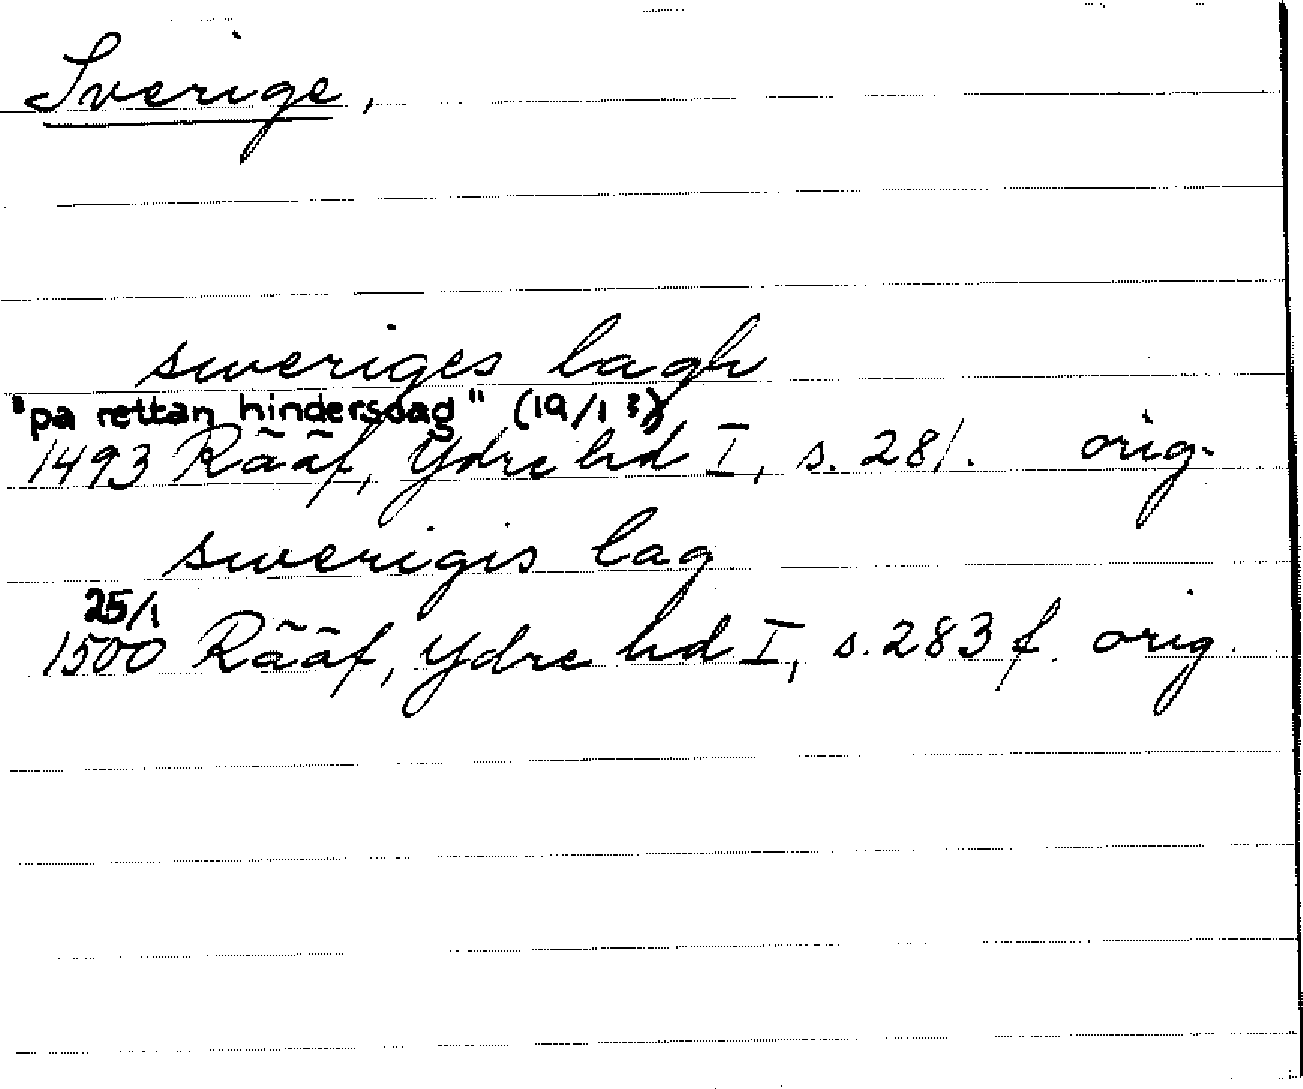 Sverige,
sweriges lagh
"pa rettan hindersdag" (19/1 ?)
1493 Rääf, Ydre hd I, s. 281. orig.
swerigis lag
25/1
1500 Rääf, Ydre hd I, s. 283 f. orig.